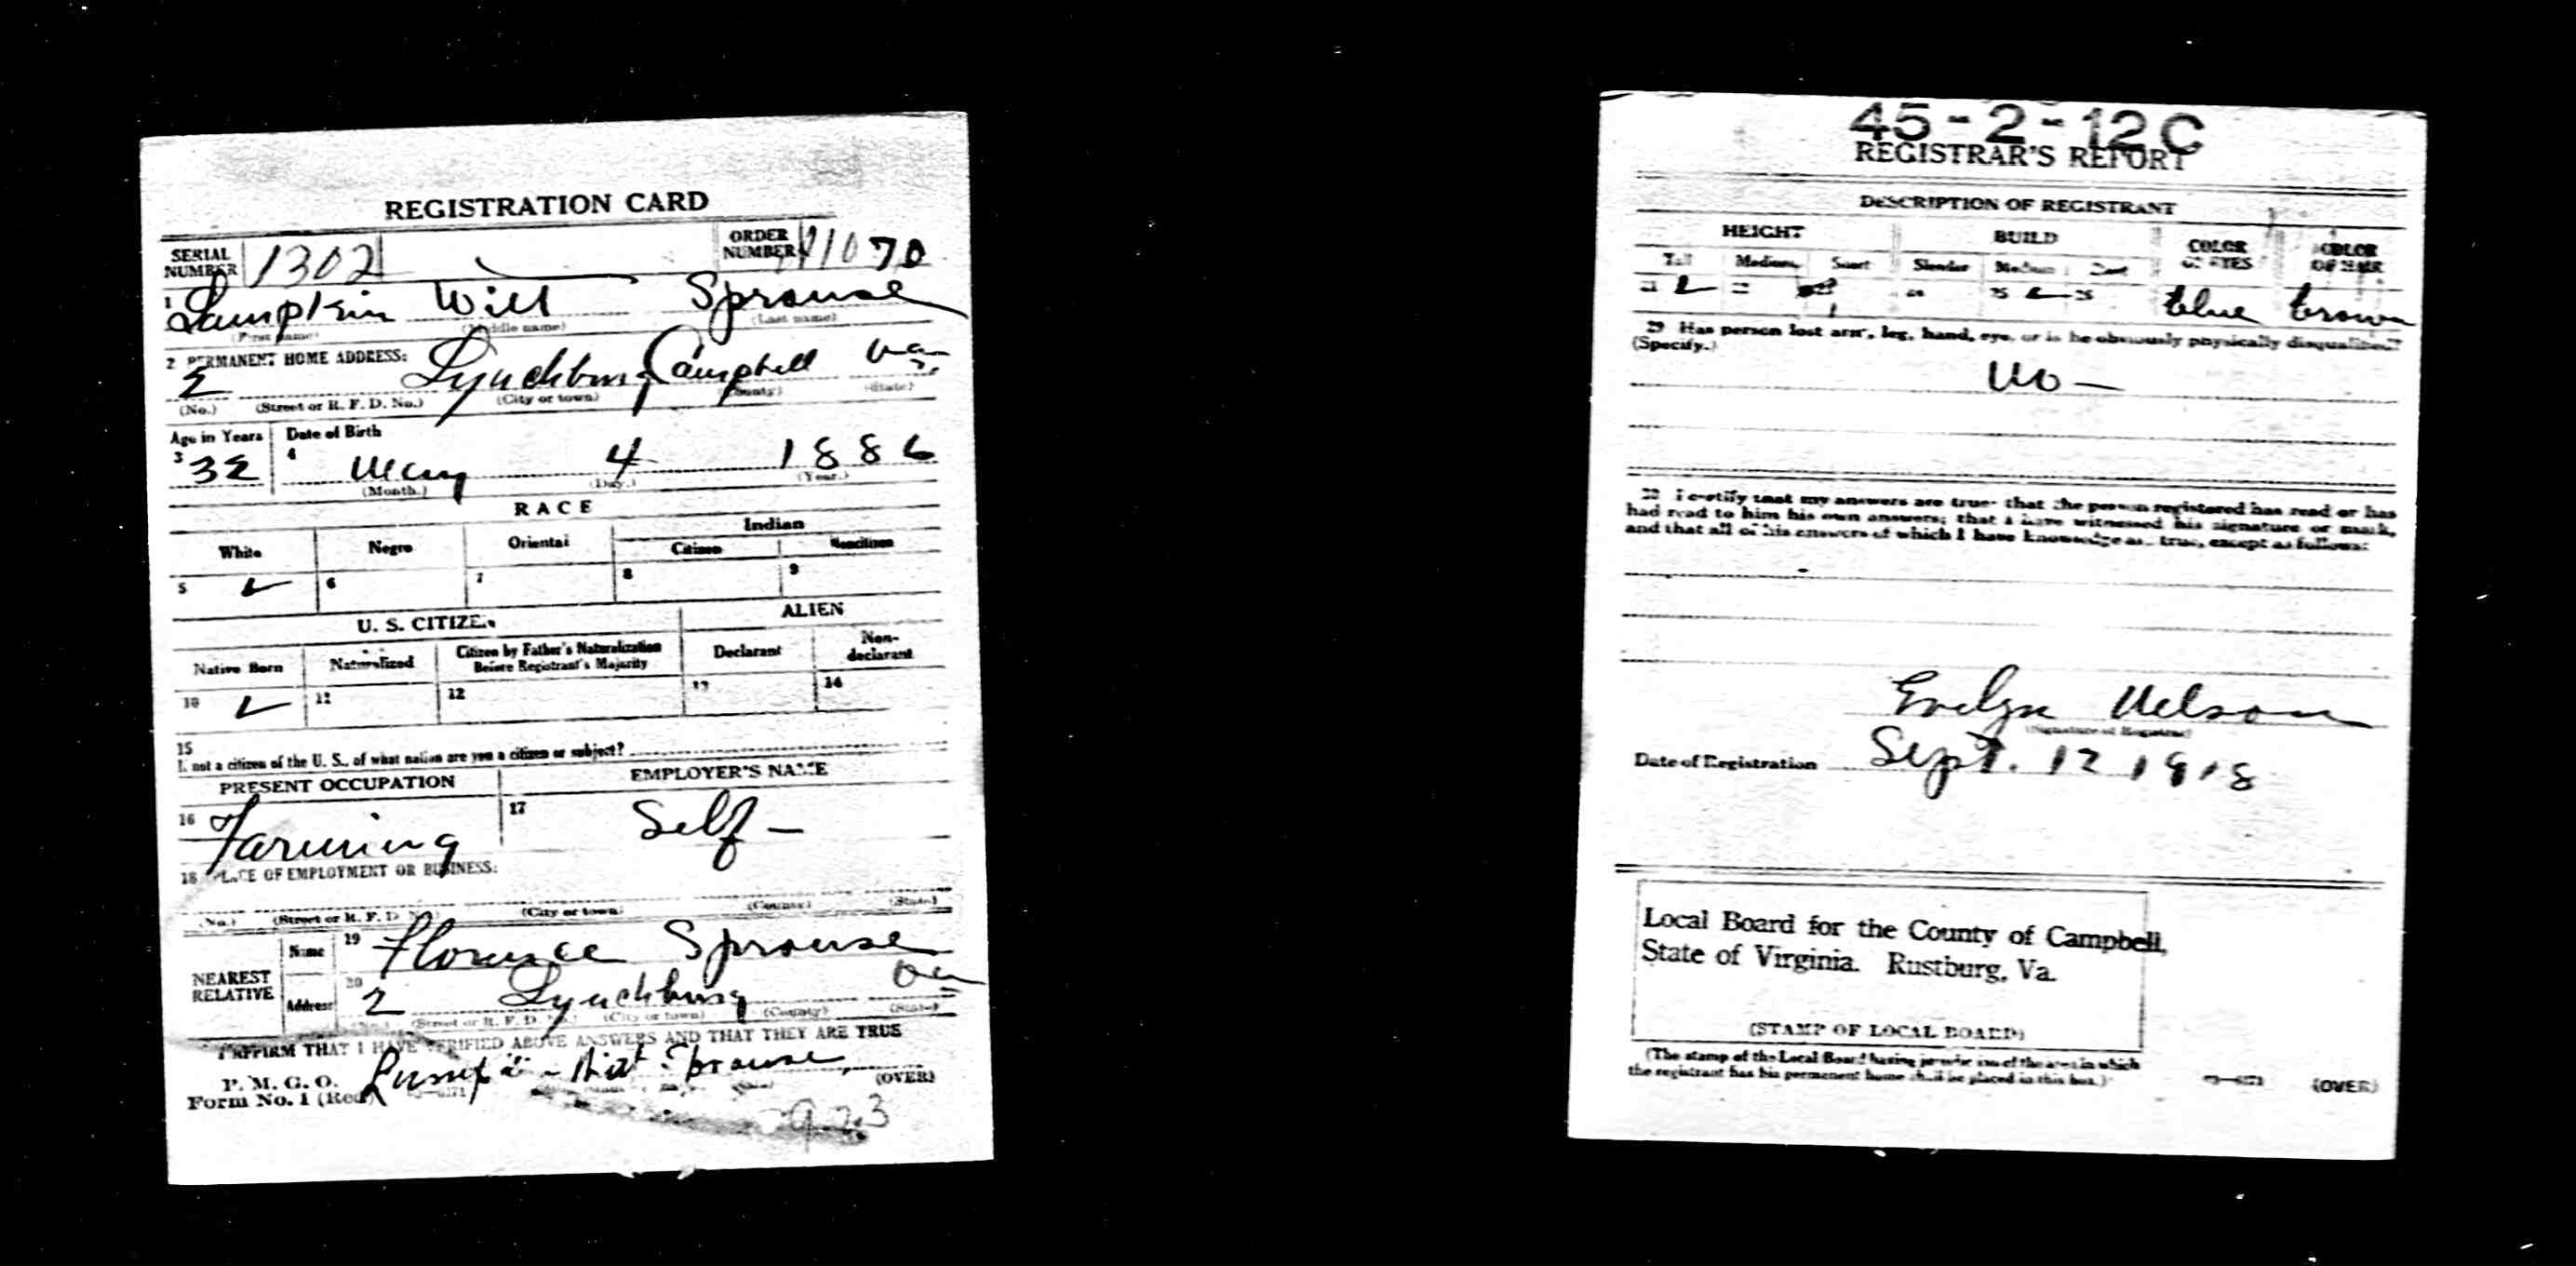 REGISTRATION CARD
SERIAL NUMBER 1302
ORDER NUMBER 1070
1 Lampkin Will Sprouse
(First name) (Middle name) (Last name)
2 PERMANENT HOME ADDRESS:
2 Lynchburg Campbell Va.
(No.) (Street or R. F. D. No.) (City or town) (County) (State)
Age in Years Date of Birth
3 32 4 May 4 1886
(Month.) (Day.) (Year.)
RACE
White Negro Oriental Indian
Citizen Noncitizen
5 6 7 8 9
U. S. CITIZEN ALIEN
Native Born Naturalized Citizen by Father's Naturalization Before Registrant's Majority Declarant Non-declarant
10 11 12 13 14
15
If not a citizen of the U. S., of what nation are you a citizen or subject?
PRESENT OCCUPATION EMPLOYER'S NAME
16 Farming 17 Self -
18 PLACE OF EMPLOYMENT OR BUSINESS:
(No.) (Street or R. F. D. No.) (City or town) (County) (State)
NEAREST RELATIVE
Name 19 Florence Sprouse
Address 20 2 Lynchburg Va
(No.) (Street or R. F. D. No.) (City or town) (County) (State)
I AFFIRM THAT I HAVE VERIFIED ABOVE ANSWERS AND THAT THEY ARE TRUE
P. M. G. O.
Form No. 1 (Red) Sprouse (OVER)
45-2-12 C
REGISTRAR'S REPORT
DESCRIPTION OF REGISTRANT
HEIGHT BUILD COLOR OF EYES COLOR OF HAIR
Tall Medium Short Slender Medium Stout
21 22 23 24 25 26 blue brown
29 Has person lost arm, leg, hand, eye, or is he obviously physically disqualified?
(Specify.)
No -
30 I certify that my answers are true; that the person registered has read or has
had read to him his own answers; that I have witnessed his signature or mark,
and that all of his answers of which I have knowledge are true, except as follows:
Evelyn Nelson
(Signature of Registrar)
Date of Registration Sept. 12 1918
Local Board for the County of Campbell,
State of Virginia. Rustburg, Va.
(STAMP OF LOCAL BOARD)
(The stamp of the Local Board having jurisdiction of the area in which
the registrant has his permanent home shall be placed in this box.)
(OVER)